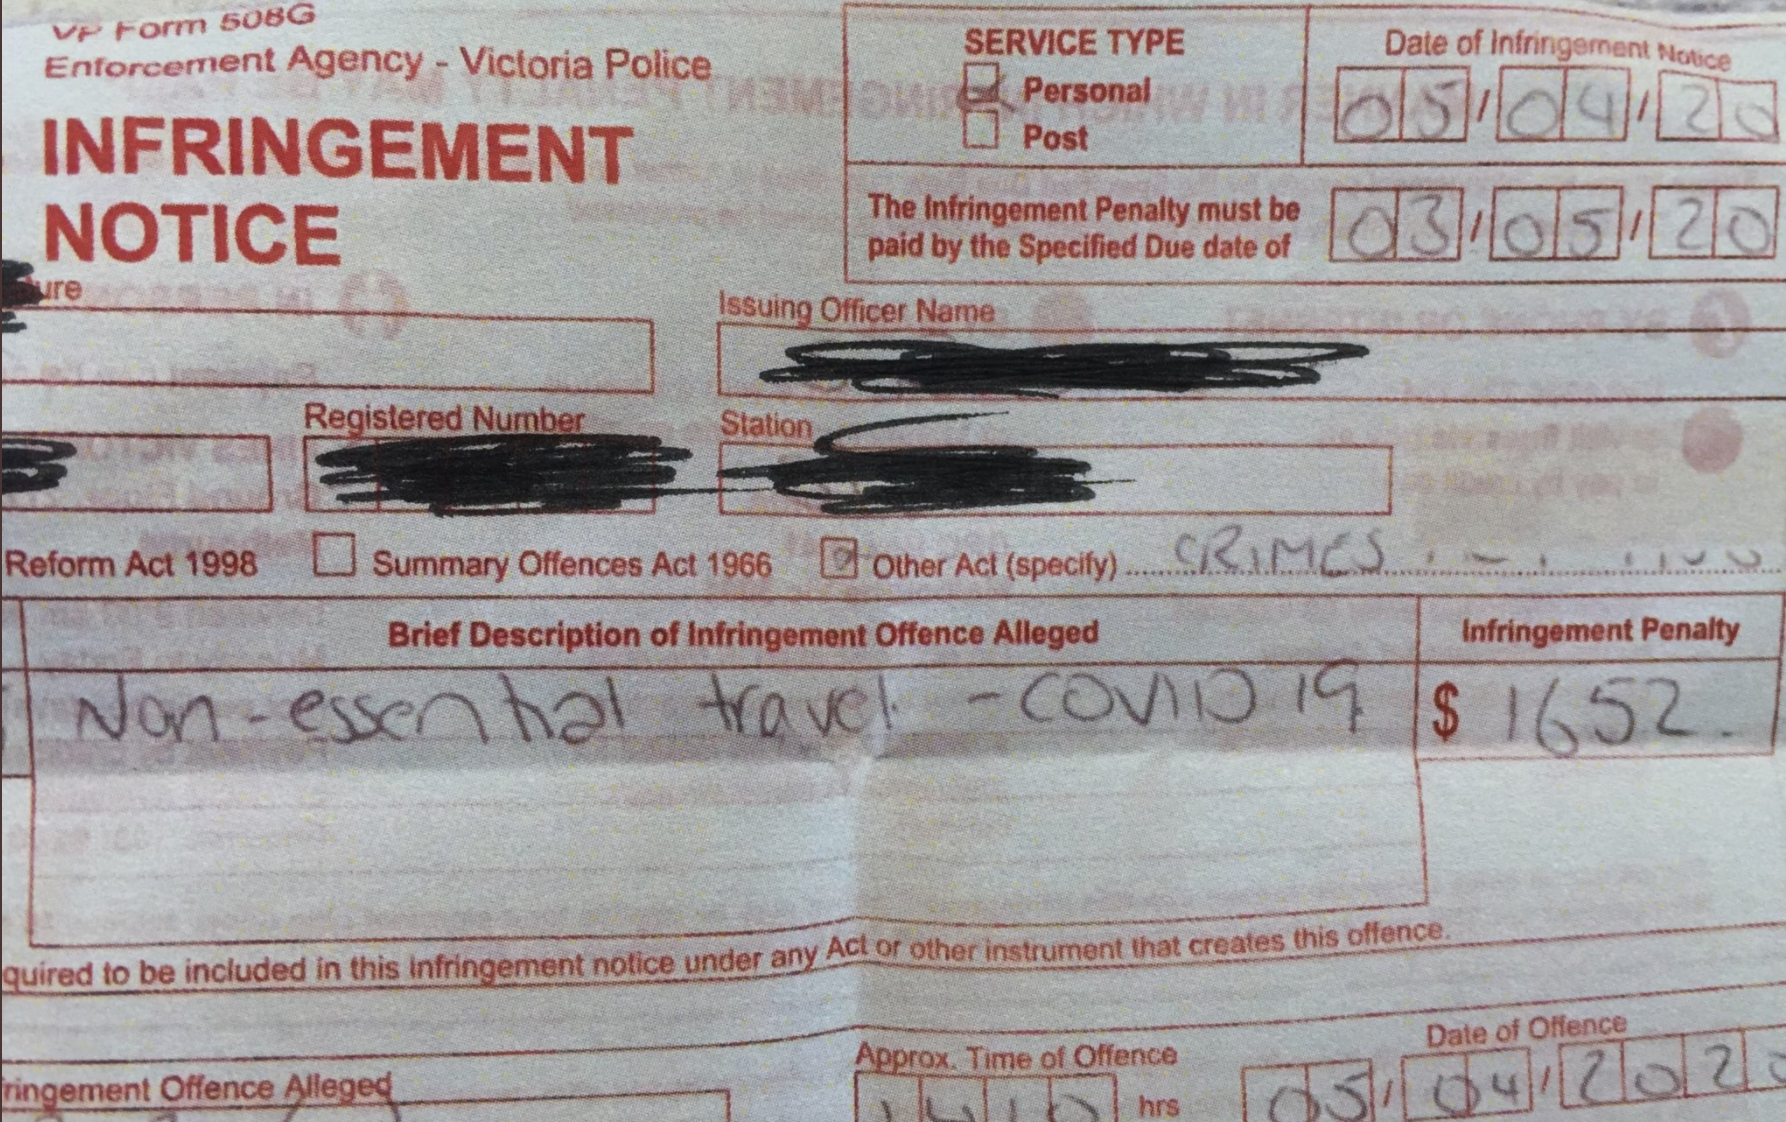 VP Form 508G
Enforcement Agency - Victoria Police
INFRINGEMENT
NOTICE
SERVICE TYPE
Personal
Post
Date of Infringement Notice
05/04/20
The Infringement Penalty must be
paid by the Specified Due date of
03/05/20
ure
Issuing Officer Name
Registered Number
Station
Reform Act 1998
Summary Offences Act 1966
Other Act (specify) CRIMES
Brief Description of Infringement Offence Alleged
Infringement Penalty
Non-essential travel - COVID 19
$ 1652.
quired to be included in this infringement notice under any Act or other instrument that creates this offence.
Approx. Time of Offence
Date of Offence
fringement Offence Alleged
1410 hrs
05/04/2020